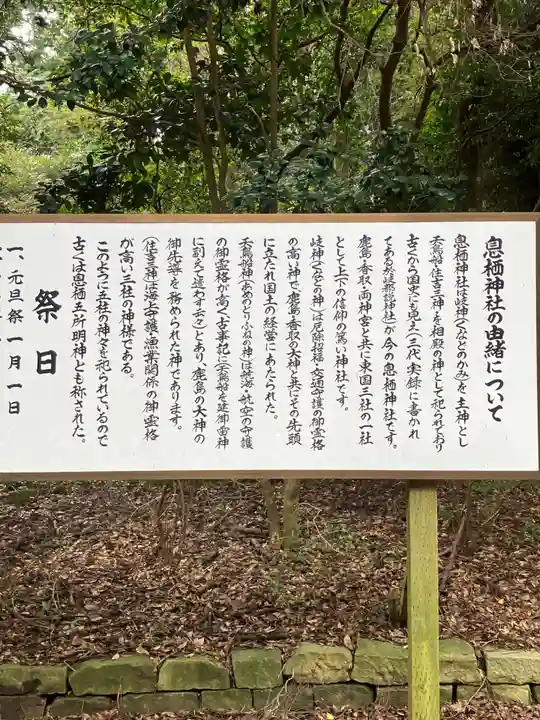 息栖神社の由緒について
息栖神社は岐神(くなどのかみ)を主神とし
天鳥船・住吉三神を相殿の神として祀られており
古くから国史にも見え(三代実録に書かれ
てある於岐都説神社)が今の息栖神社です。
鹿島・香取の両神宮と共に東国三社の一社
として上下の信仰の篤い神社です。
岐神(くなどの神)は厄除招福・交通守護の御霊格
の高い神で、鹿島・香取の大神と共にその先頭
に立たれ国土の経営にあたられた。
天鳥船神(あめのとりふねの神)は航海・航空の守護
の御霊格が高く、古事記に(天鳥船を建御雷神
に副えて遣わす云々)とあり、鹿島の大神の
御先導を務められた神であります。
(住吉三神)は海上守護・漁業関係の御霊格
が高い三柱の神様である。
このように五柱の神々を祀られているので
古くは息栖五所明神とも称された。
祭日
一、元旦祭一月一日